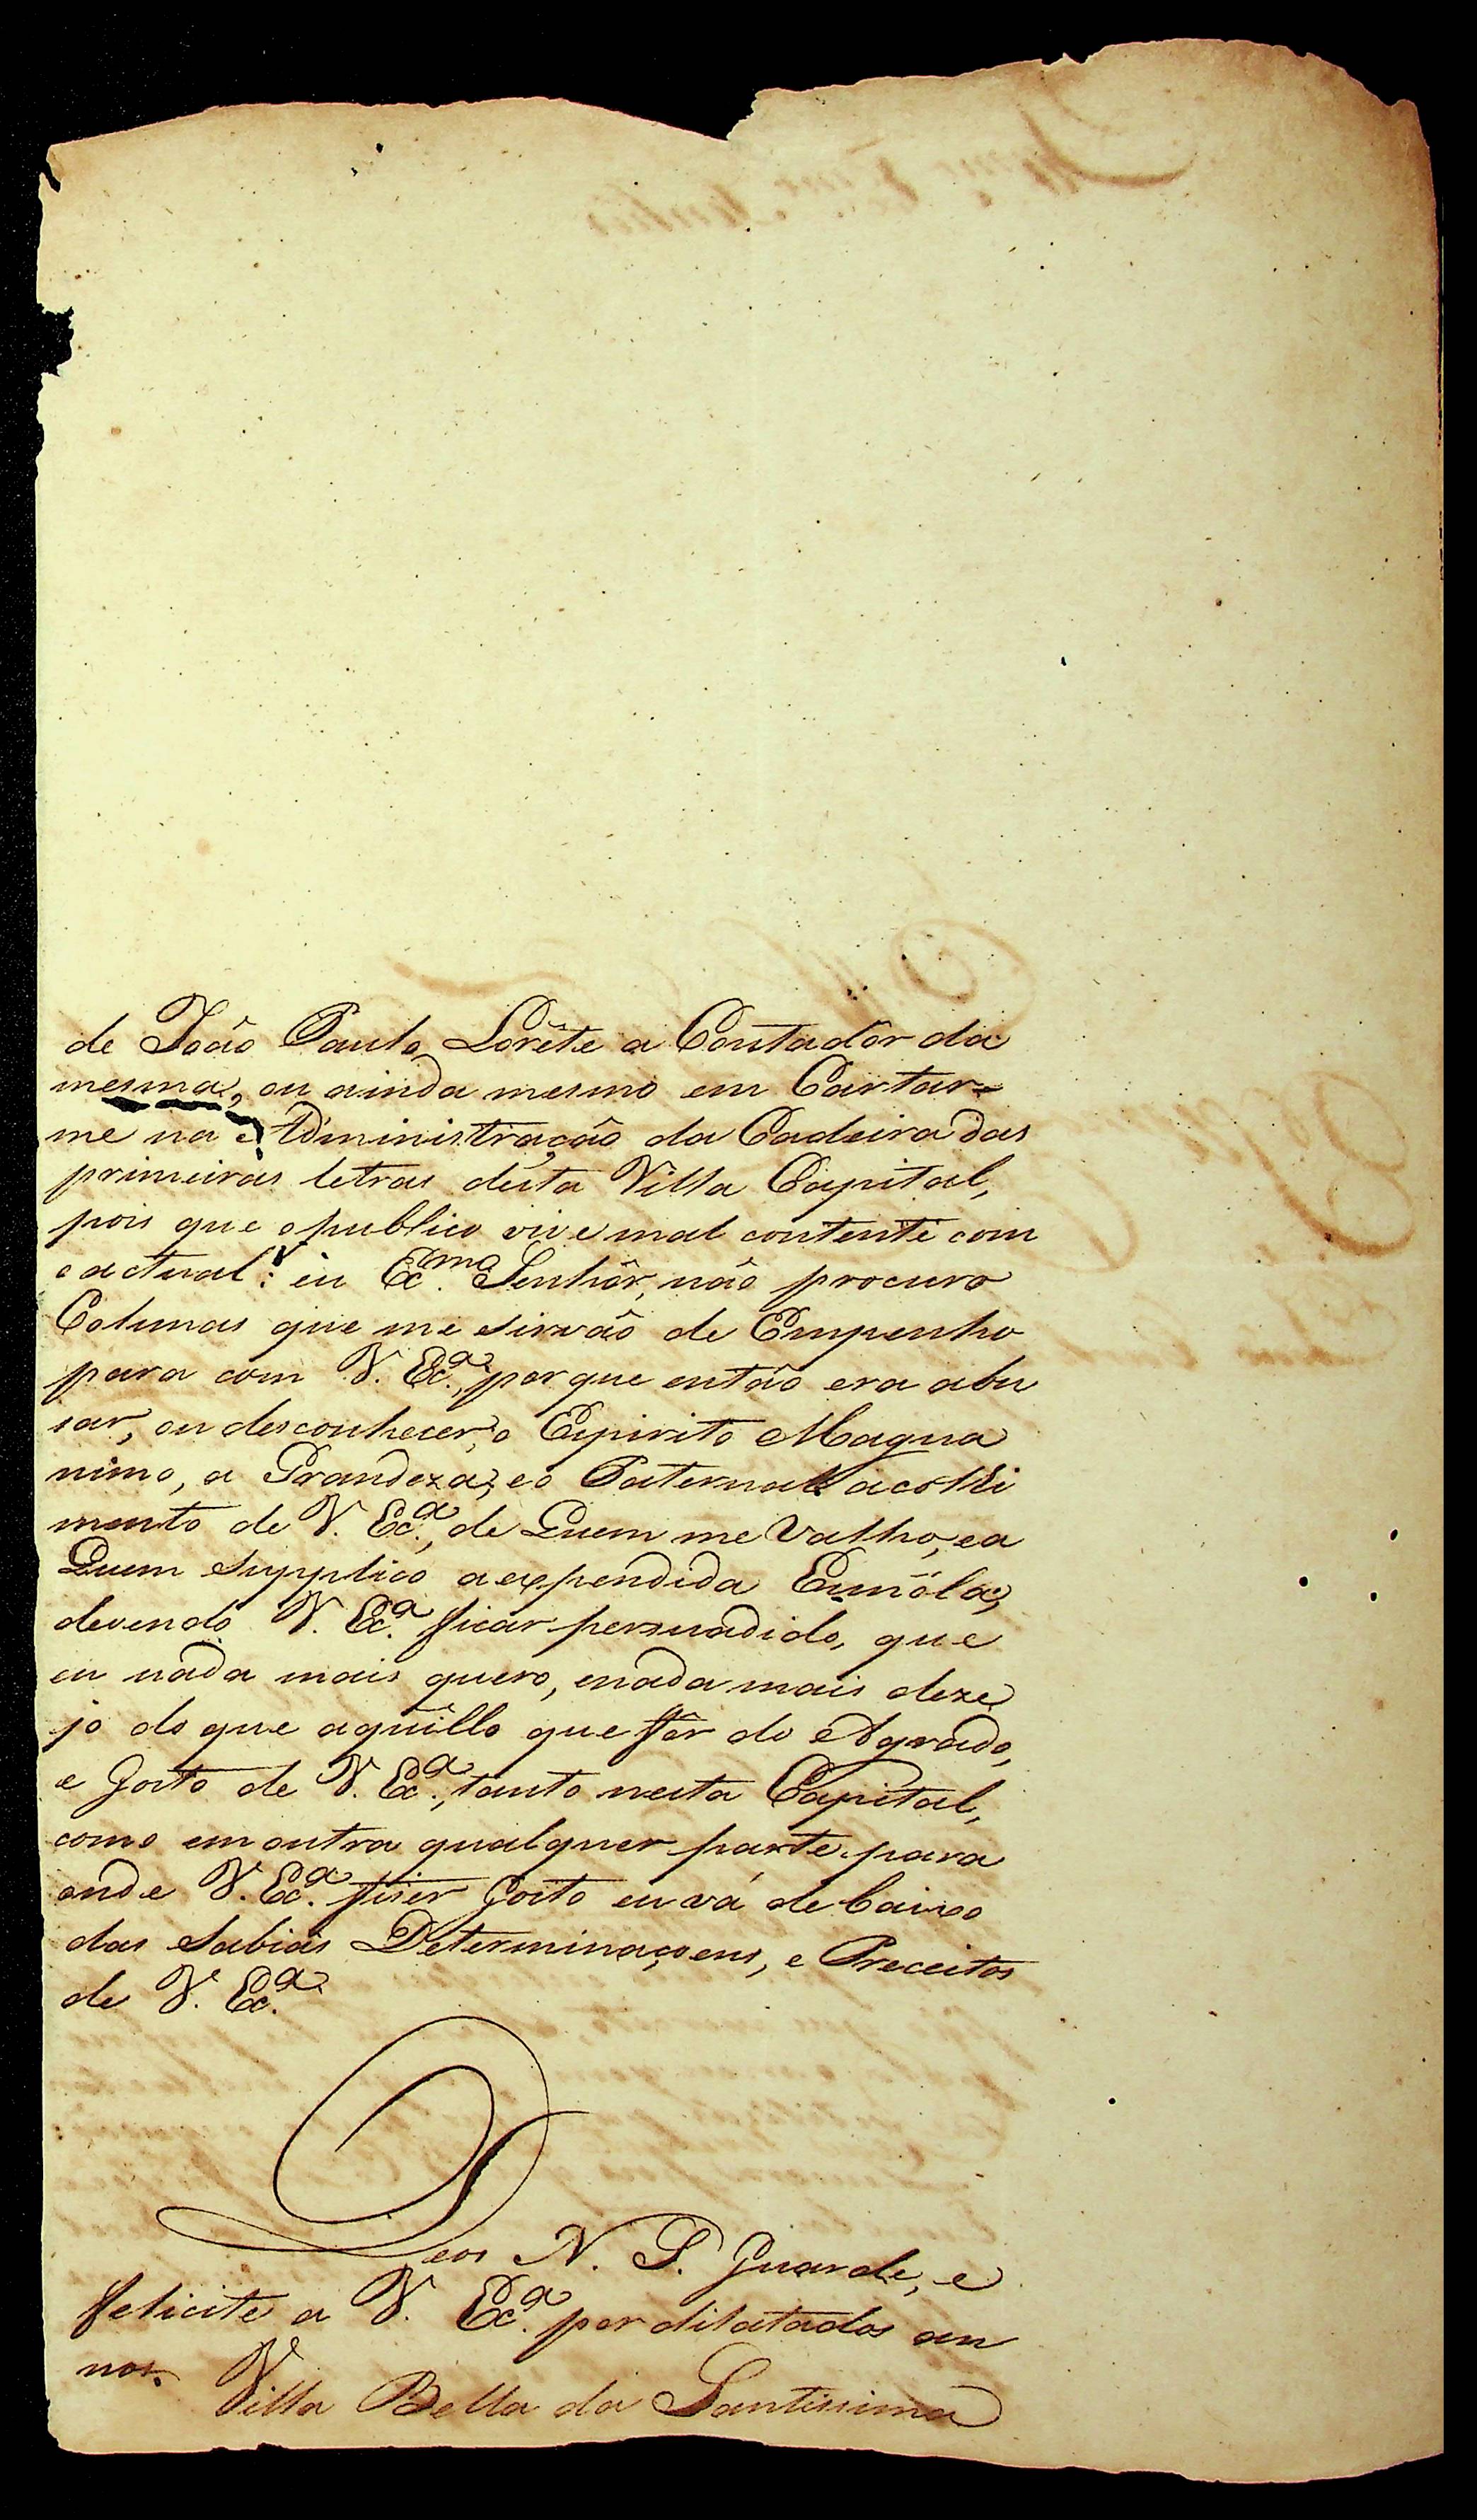 de João Paulo Lorête a Contadôr da
mesma, ou ainda mesmo em Cartar=
me na Administração da Cadeira das
primeiras letras desta Villa Capital,
pois que o publico vive mal contente com
o actual: eu Ex.ma Senhôr, não procuro
Colunas que me sirvão de Empenho
para com V. Ex.a, porque então era abu
sar, ou desconhecer, o Espirito Magna
nimo, a Grandeza, e o Paternal acolhi
mento de V. Ex.a, de Quem me Valho, e a
Quem Supplico a expendida Esmóla,
devendo V. Ex.a ficar persuadido, que
eu nada mais quero, enada mais deze
jo do que aquillo que fôr do Agrado,
e Gosto de V. Ex.a, tanto nesta Capital,
como em outra qualquer parte para
onde V. Ex.a fizer Gosto eu vá debaixo
das Sabias Determinaçoens, e Preceitos
de V. Ex.a
Deos N. S. Guarde, e
felicite a V. Ex.a por dilatados an
nos. Villa Bella da Santissima